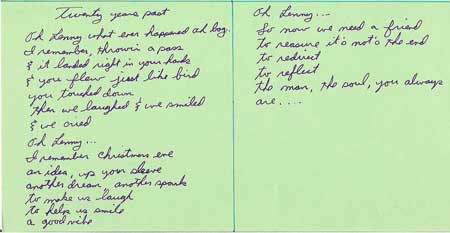 Twenty years past
Oh Lenny what ever happened oh boy.
I remember, throwin a pass
& it landed right in your hands
& you flew just like bird
you touched down
then we laughed & we smiled
& we cried
Oh Lenny...
I remember christmas eve
an idea, up your sleeve
another dream, another spark
to make us laugh
to help us smile
a good vibe
Oh Lenny...
So now we need a friend
to reasure it's not the end
to redirect
to reflect
the man, the soul, you always
are....